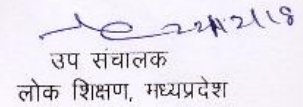 22/12/18
उप संचालक
लोक शिक्षण, मध्यप्रदेश